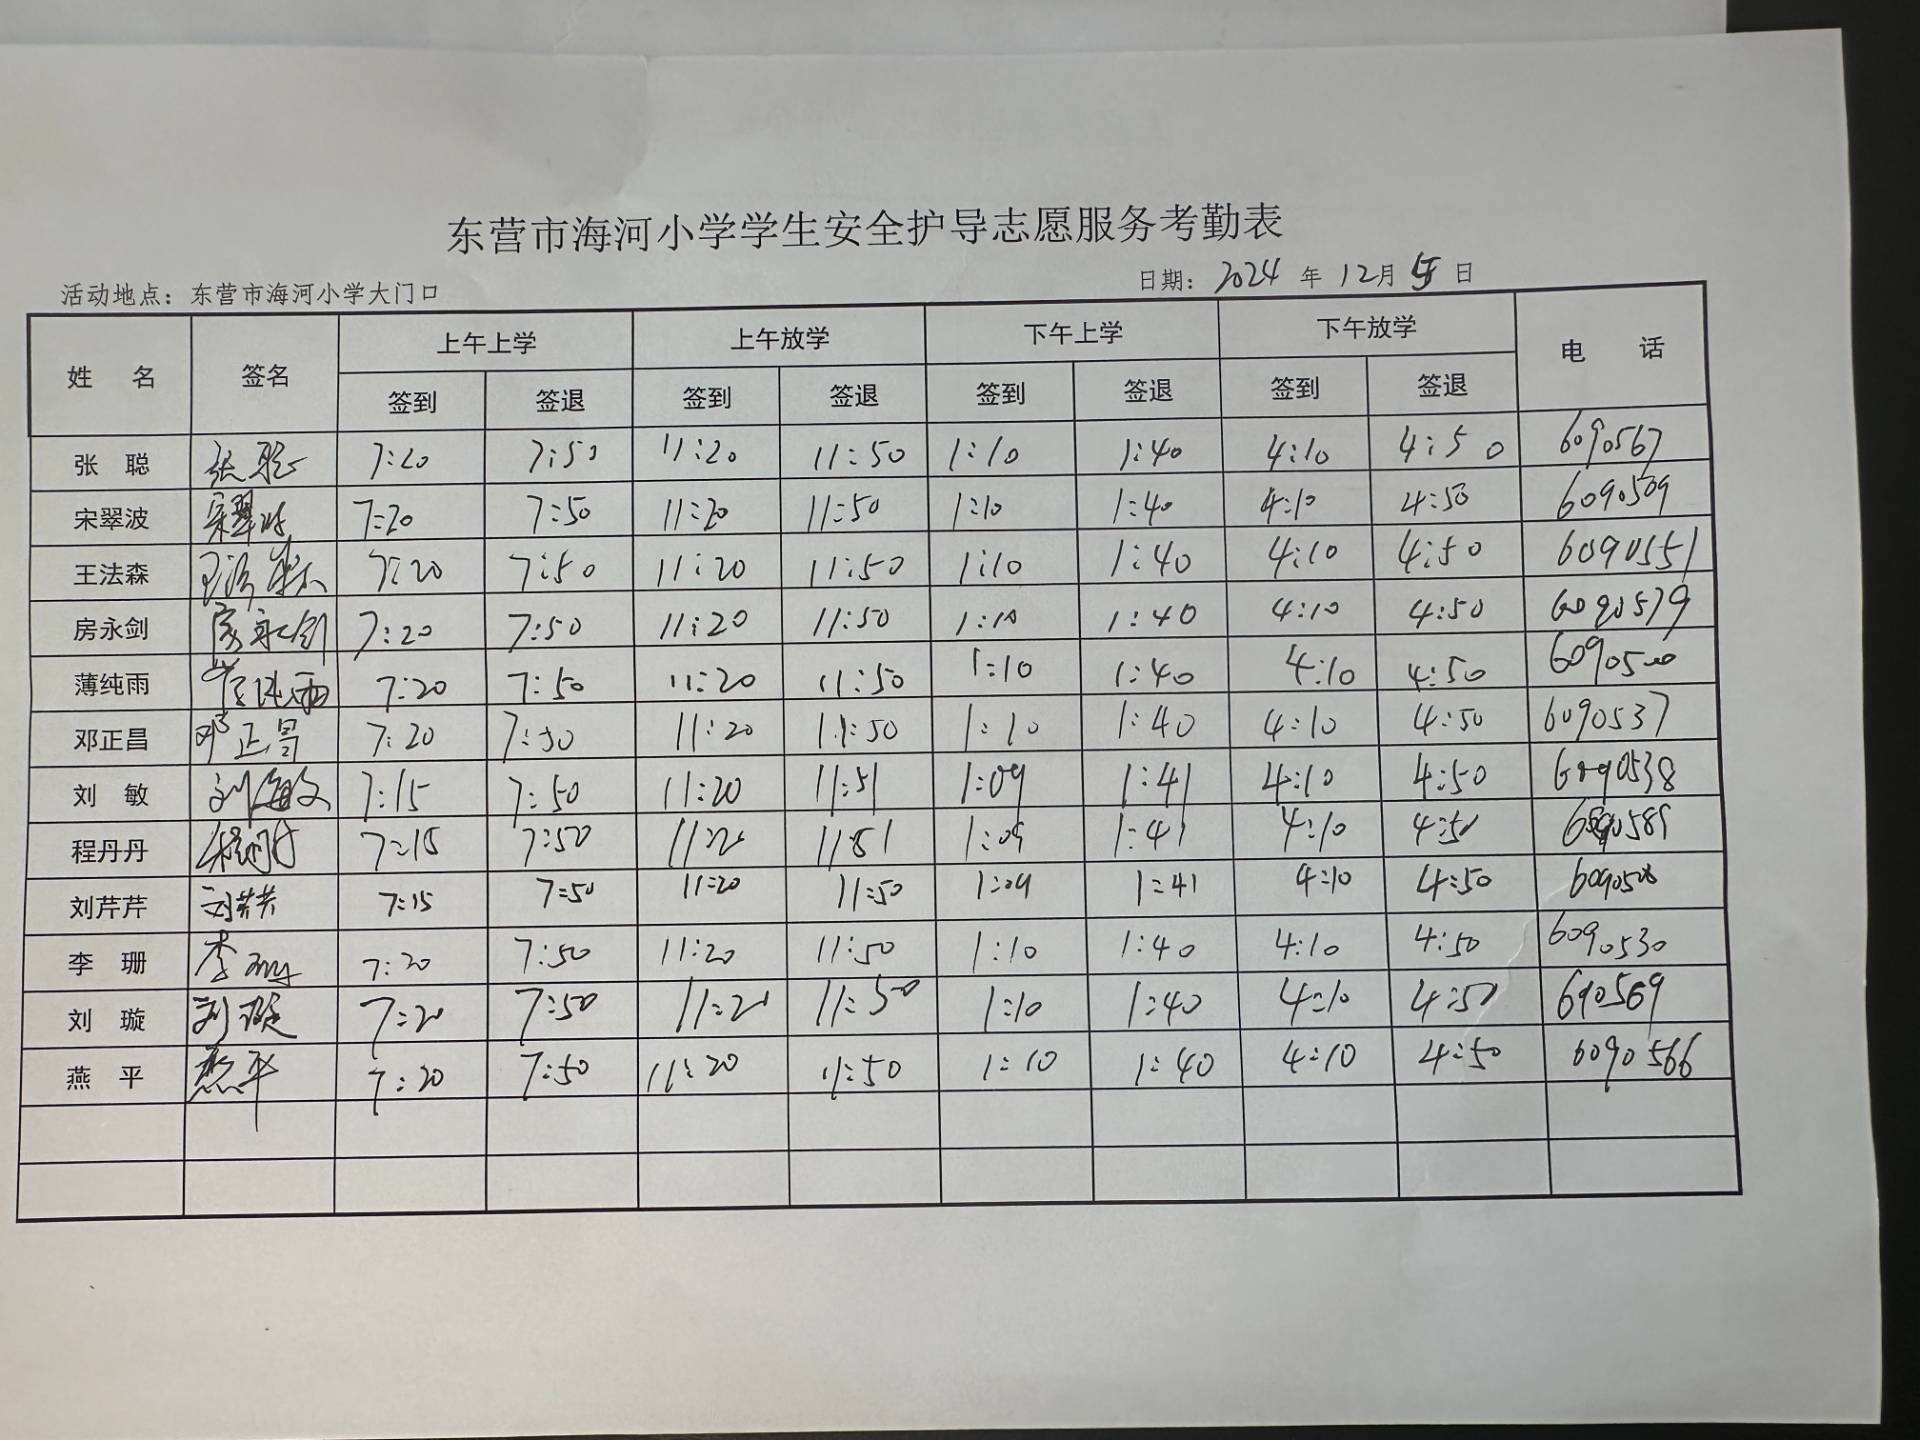 东营市海河小学学生安全护导志愿服务考勤表
活动地点：东营市海河小学大门口 日期：2024 年 12月 5 日
姓 名 签名 上午上学 上午放学 下午上学 下午放学 电 话
签到 签退 签到 签退 签到 签退 签到 签退
张 聪 张聪 7:20 7:50 11:20 11:50 1:10 1:40 4:10 4:50 6090567
宋翠波 宋翠波 7:20 7:50 11:20 11:50 1:10 1:40 4:10 4:50 6090509
王法森 王法森 7:20 7:50 11:20 11:50 1:10 1:40 4:10 4:50 6090551
房永剑 房永剑 7:20 7:50 11:20 11:50 1:10 1:40 4:10 4:50 6090579
薄纯雨 薄纯雨 7:20 7:50 11:20 11:50 1:10 1:40 4:10 4:50 6090500
邓正昌 邓正昌 7:20 7:50 11:20 11:50 1:10 1:40 4:10 4:50 6090537
刘 敏 刘敏 7:15 7:50 11:20 11:51 1:09 1:41 4:10 4:50 6090538
程丹丹 程丹丹 7:15 7:50 11:20 11:51 1:09 1:41 4:10 4:50 6090589
刘芹芹 刘芹芹 7:15 7:50 11:20 11:50 1:09 1:41 4:10 4:50
李 珊 李珊 7:20 7:50 11:20 11:50 1:10 1:40 4:10 4:50 6090530
刘 璇 刘璇 7:20 7:50 11:20 11:50 1:10 1:40 4:10 4:50 690569
燕 平 燕平 7:20 7:50 11:20 11:50 1:10 1:40 4:10 4:50 6090566